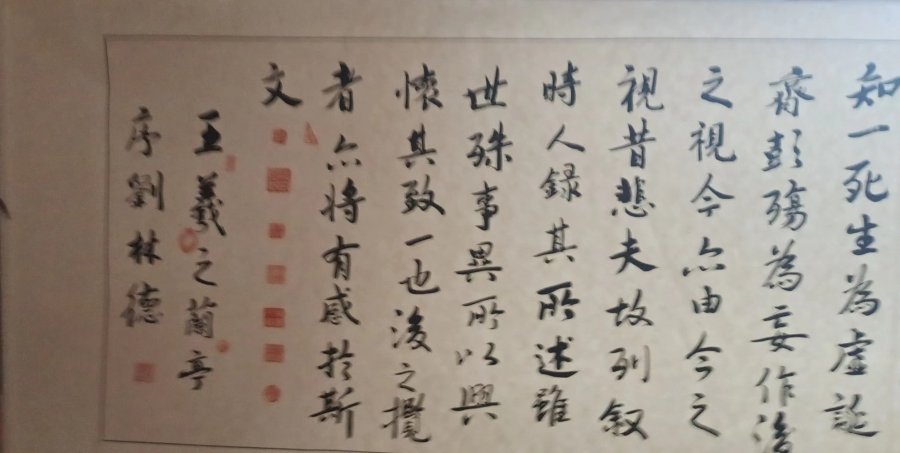 知一死生為虛誕
齊彭殤為妄作後
之視今亦由今之
視昔悲夫故列叙
時人録其所述雖
世殊事異所以興
懷其致一也後之攬
者亦將有感於斯
文
王羲之蘭亭
序劉林德